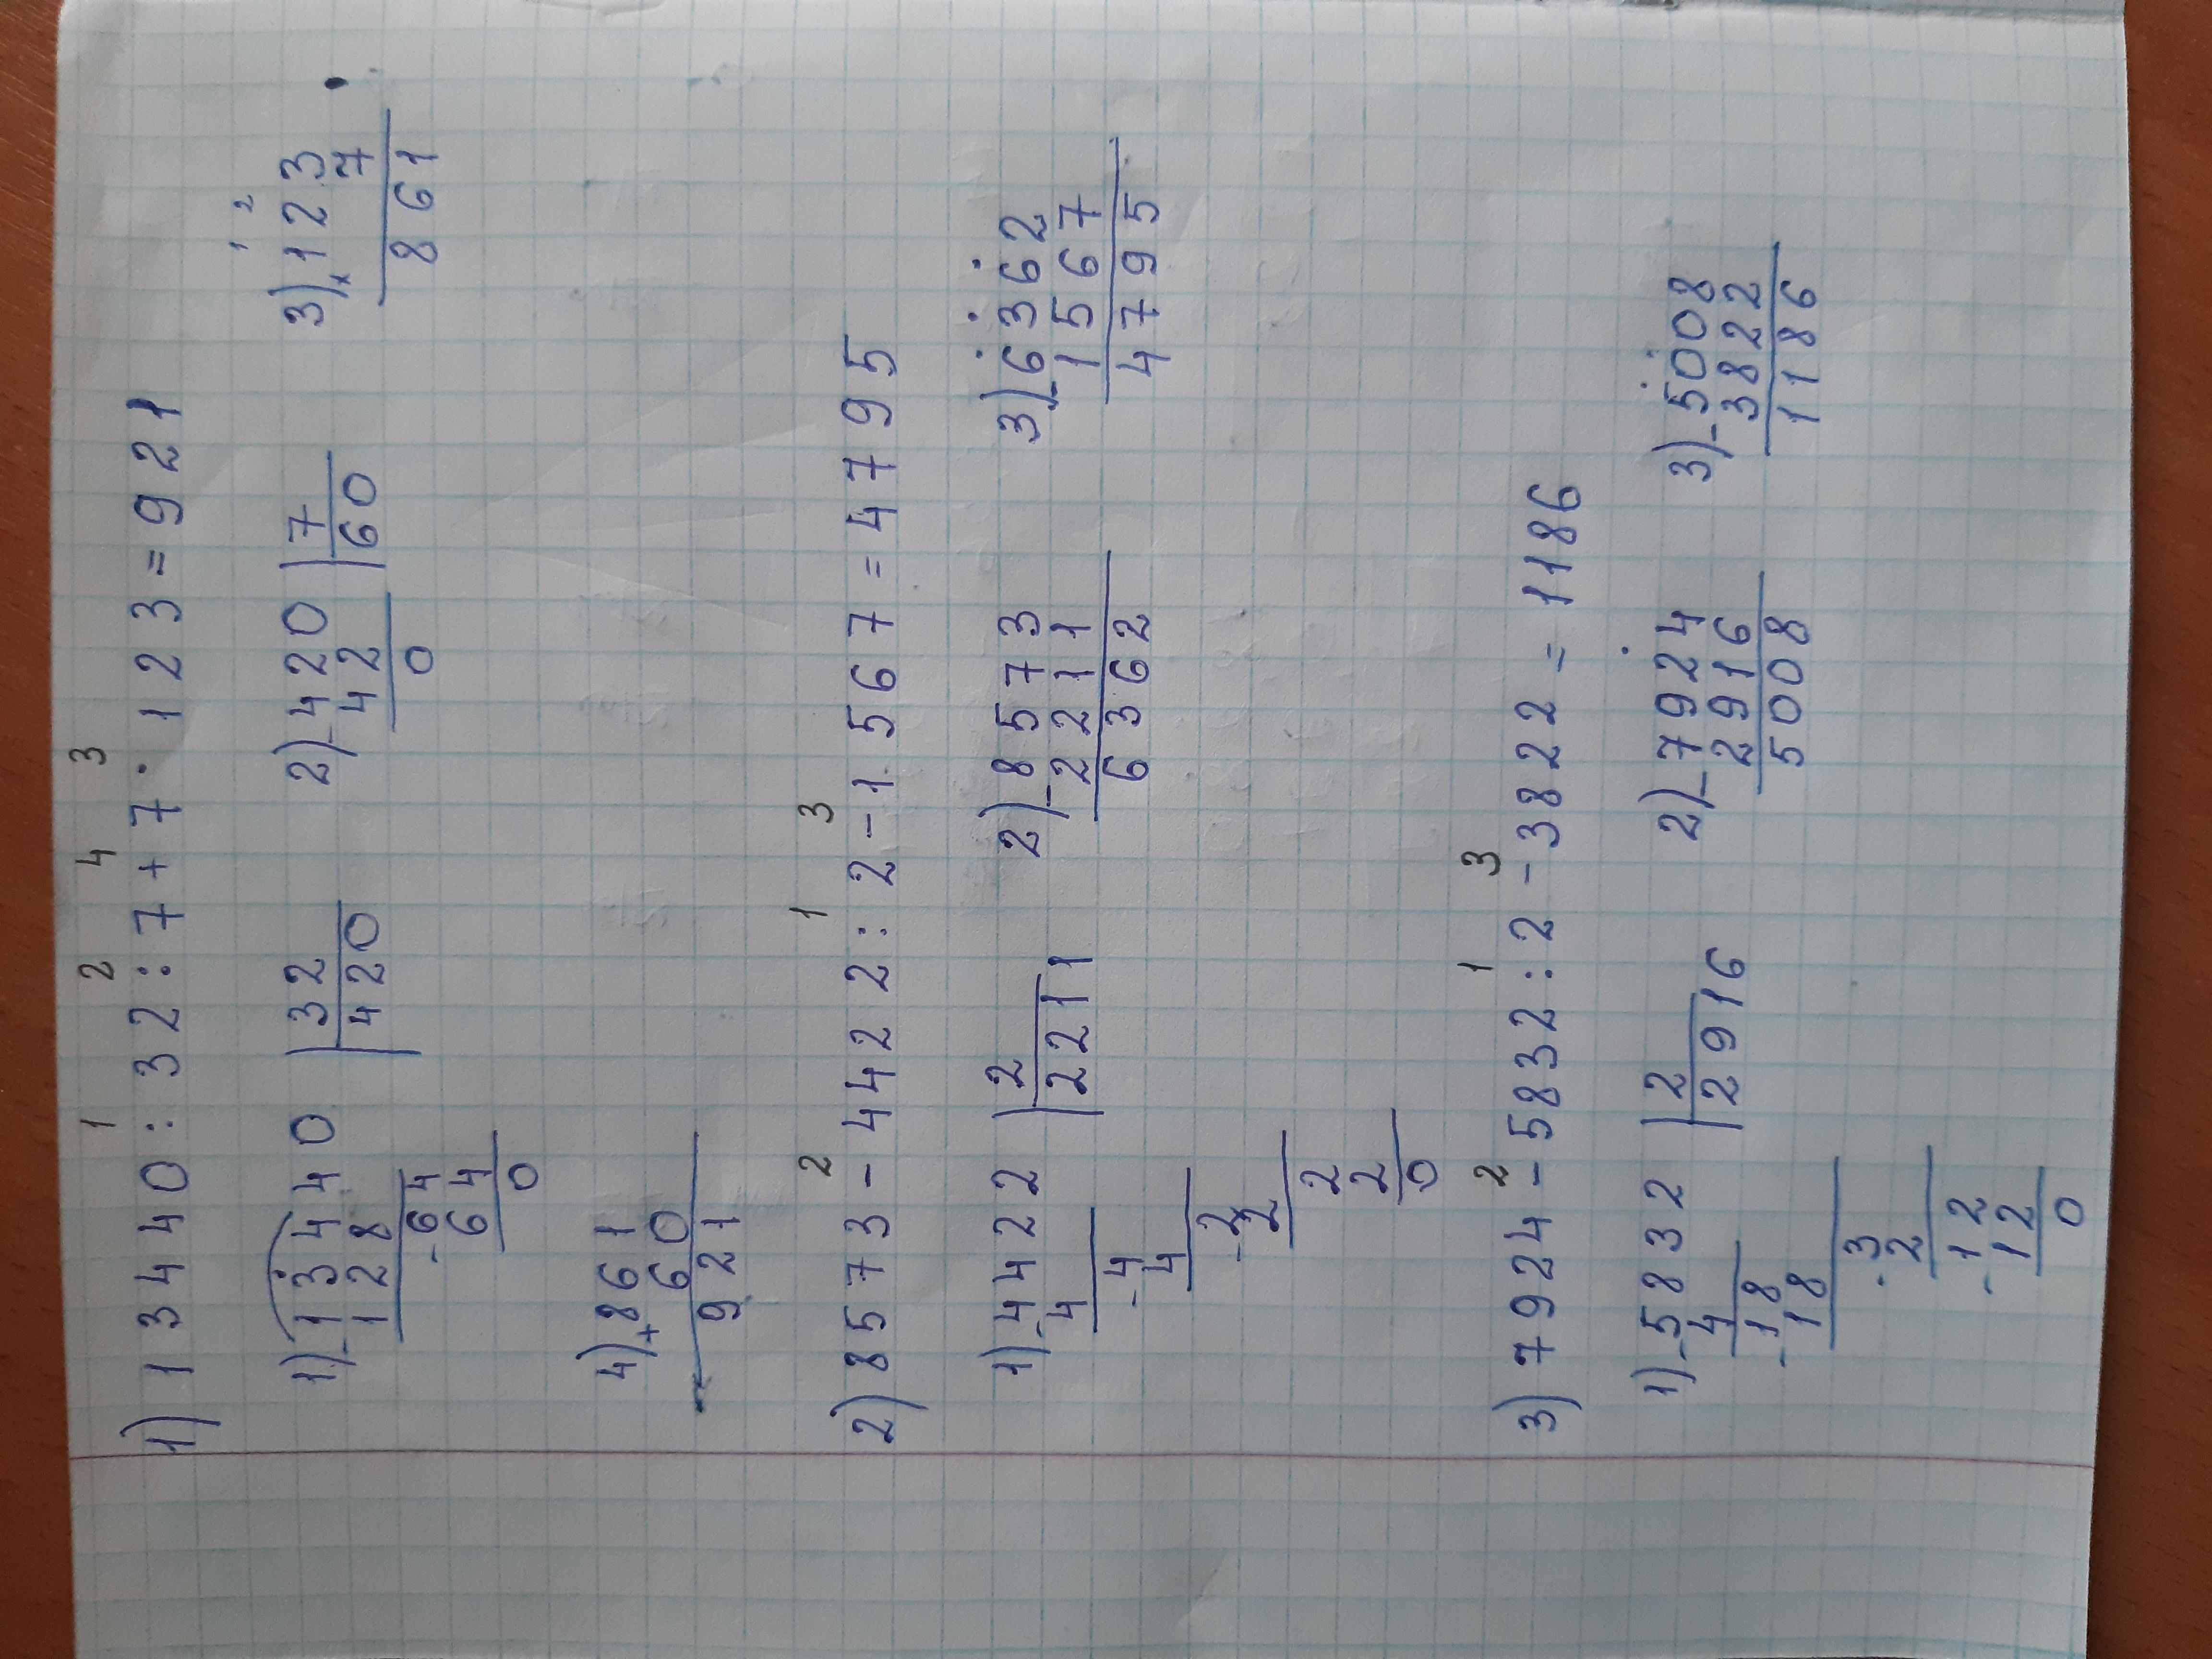 1 2 4 3
1) 13440 : 32 : 7 + 7 · 123 = 921
1) - 13440 | 32 2) - 420 | 7 3) × 123
128 | 420 42 | 60 7
- 64 0 861
64
0
4) + 861
60
921
2 1 3
2) 8573 - 4422 : 2 - 1567 = 4795
1) - 4422 | 2 2) - 8573 3) - 6362
4 | 2211 2211 1567
- 4 6362 4795
4
- 2
2
2
2
0
2 1 3
3) 7924 - 5832 : 2 - 3822 = 1186
1) - 5832 | 2 2) - 7924 3) - 5008
4 | 2916 2916 3822
- 18 5008 1186
18
- 3
2
- 12
12
0